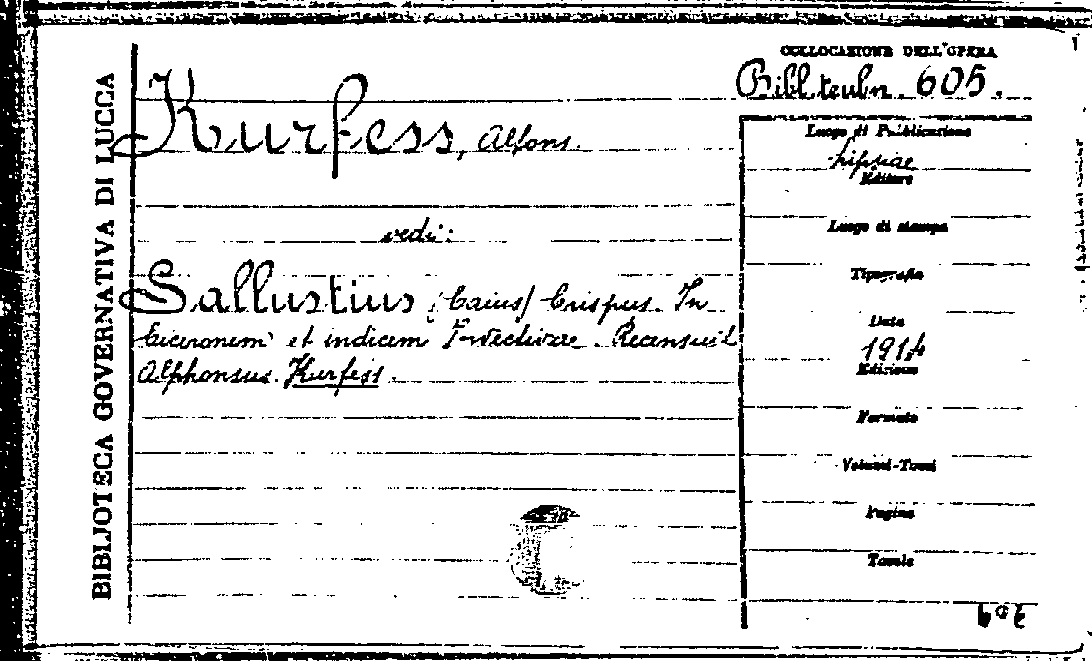 COLLOCAZIONE DELL'OPERA
Bibl. teubn. 605.
Kurfess, Alfons.
vedi:
Sallustius (Caius) Crispus. In
Ciceronem et indicem Invectivae. Recensuit
Alphonsus Kurfess.
Luogo di Pubblicazione
Lipsiae
Editore
Luogo di stampa
Tipografia
Data
1914
Edizione
Formato
Volumi-Tomi
Pagine
Tavole
BIBLIOTECA GOVERNATIVA DI LUCCA